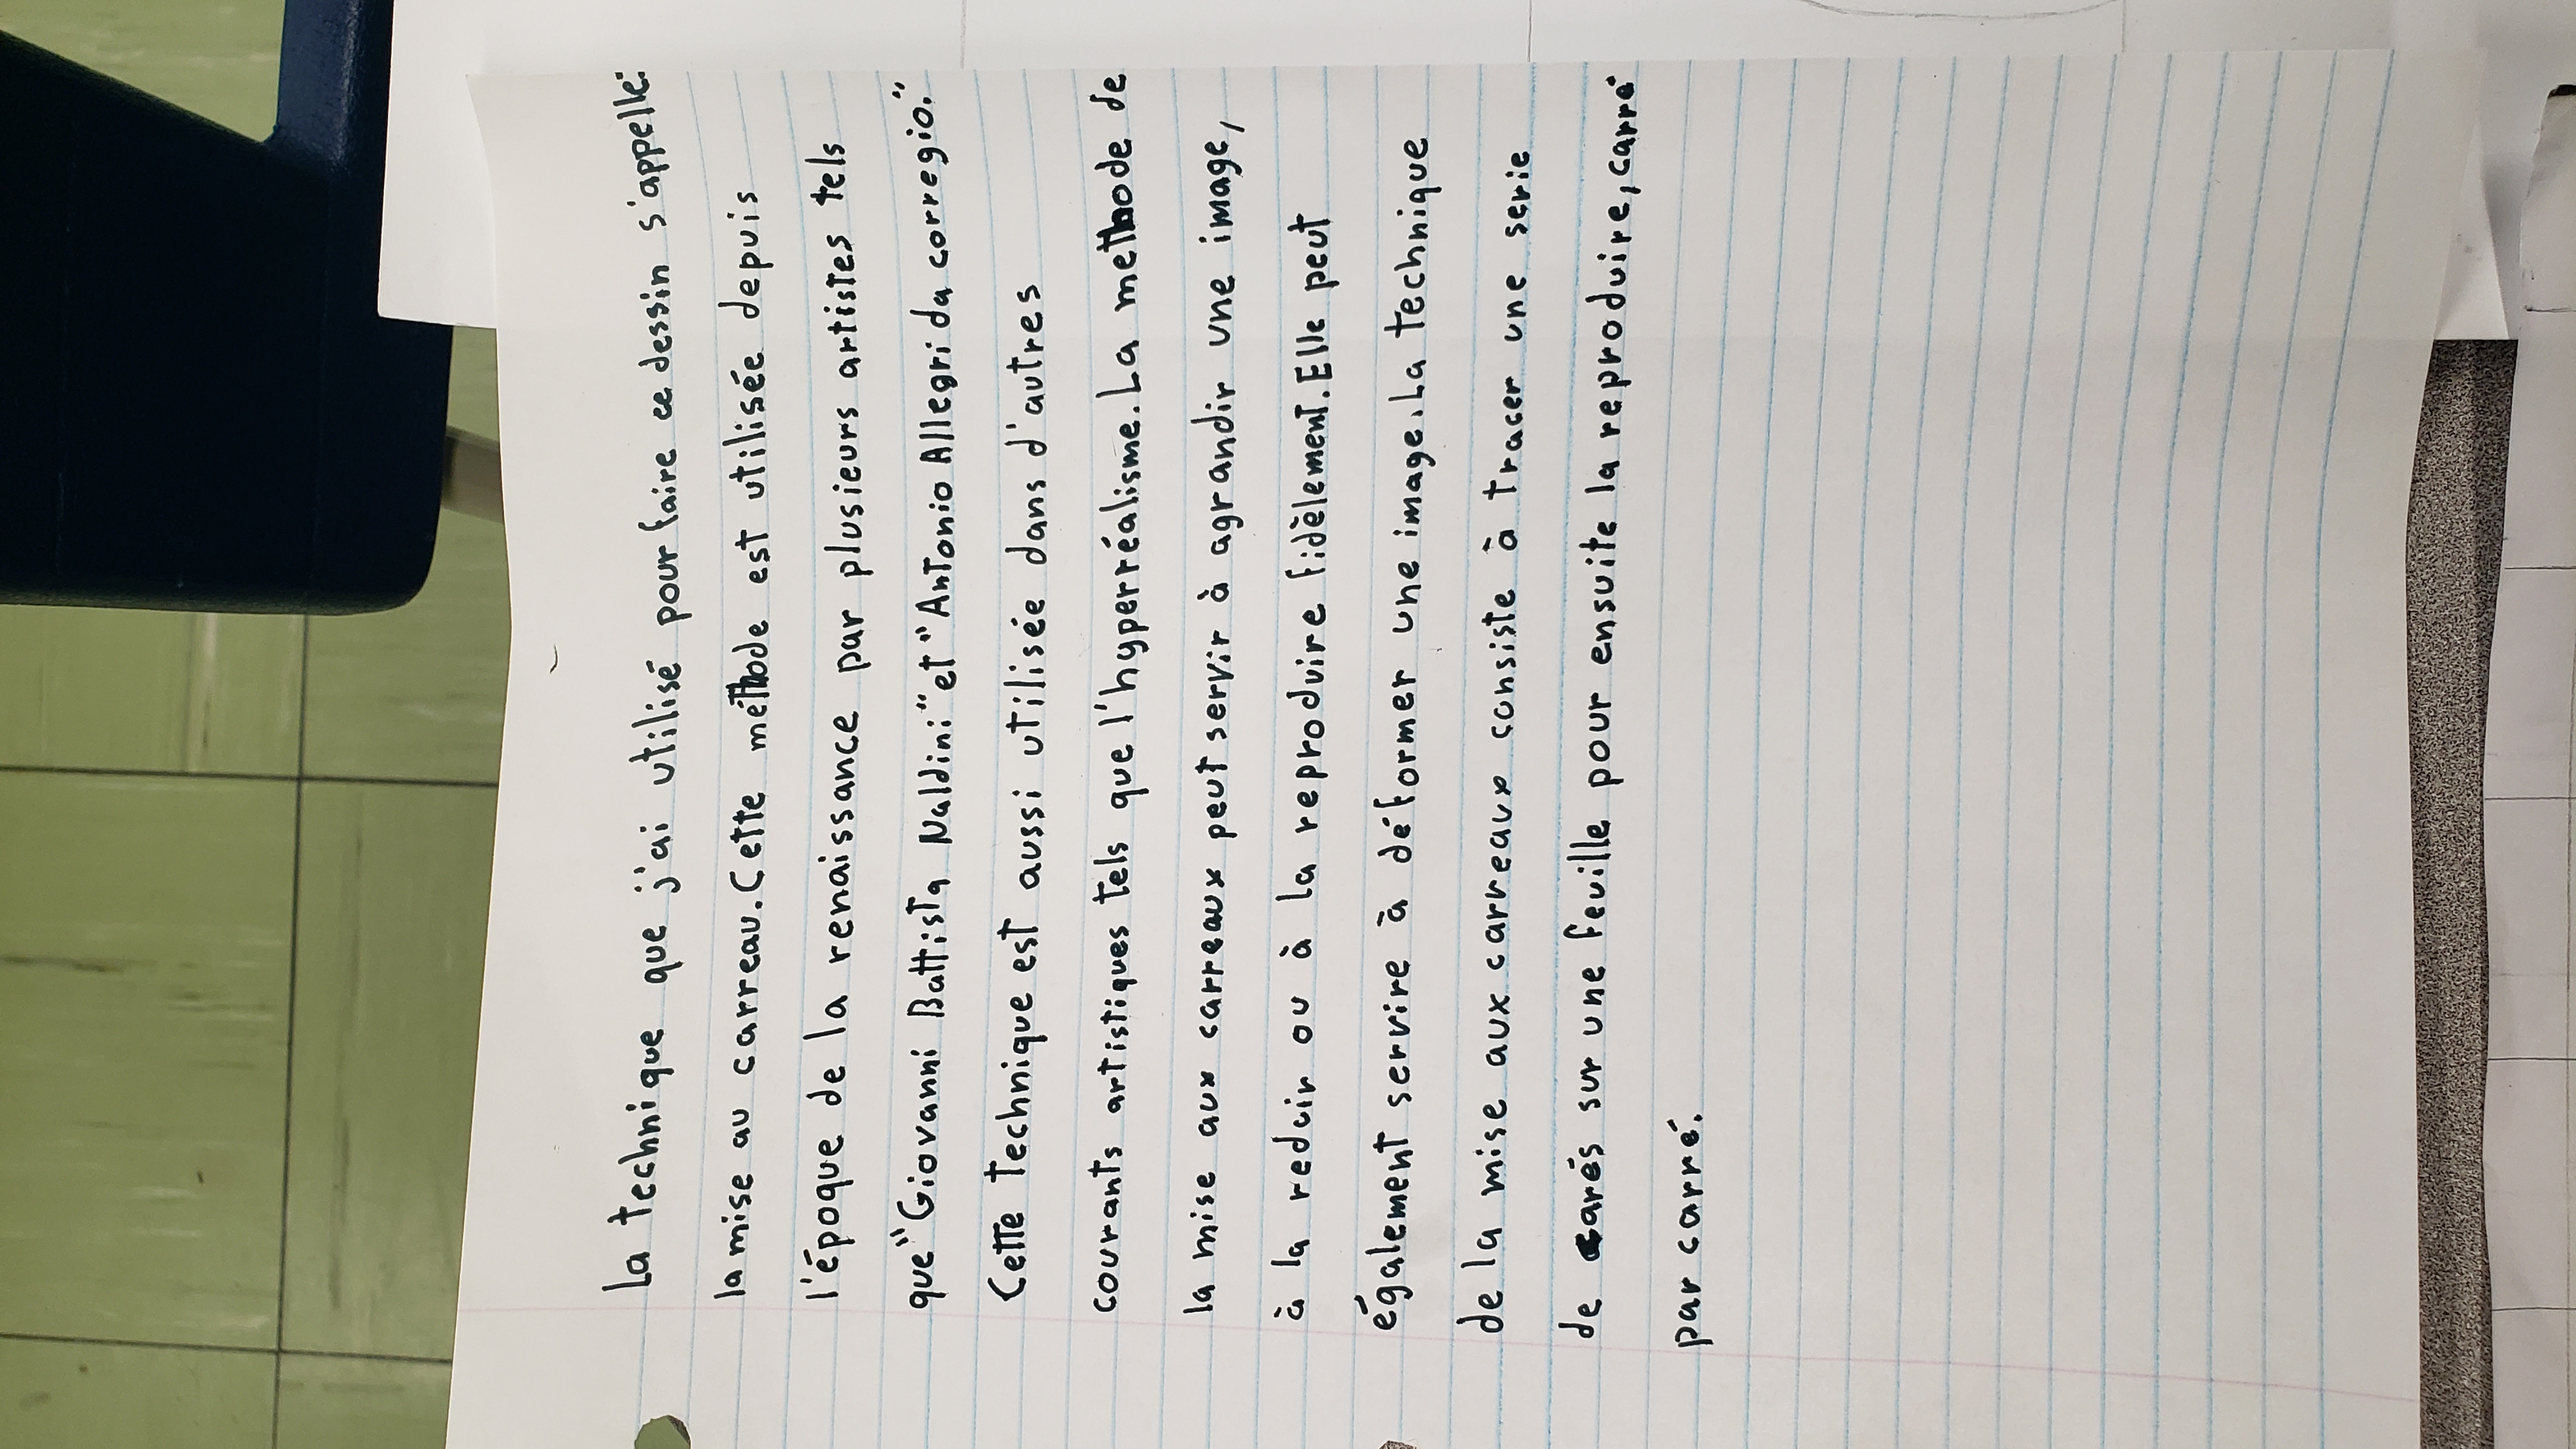 La technique que j'ai utilisé pour faire ce dessin s'appelle:
la mise au carreau. Cette méthode est utilisée depuis
l'époque de la renaissance par plusieurs artistes tels
que "Giovanni Battista Naldini" et "Antonio Allegri da corregio."
Cette technique est aussi utilisée dans d'autres
courants artistiques tels que l'hyperréalisme. La methode de
la mise aux carreaux peut servir à agrandir une image,
à la reduir ou à la reproduire fidèlement. Elle peut
également servire à déformer une image. La technique
de la mise aux carreaux consiste à tracer une serie
de carés sur une feuille pour ensuite la reproduire, carré
par carré.